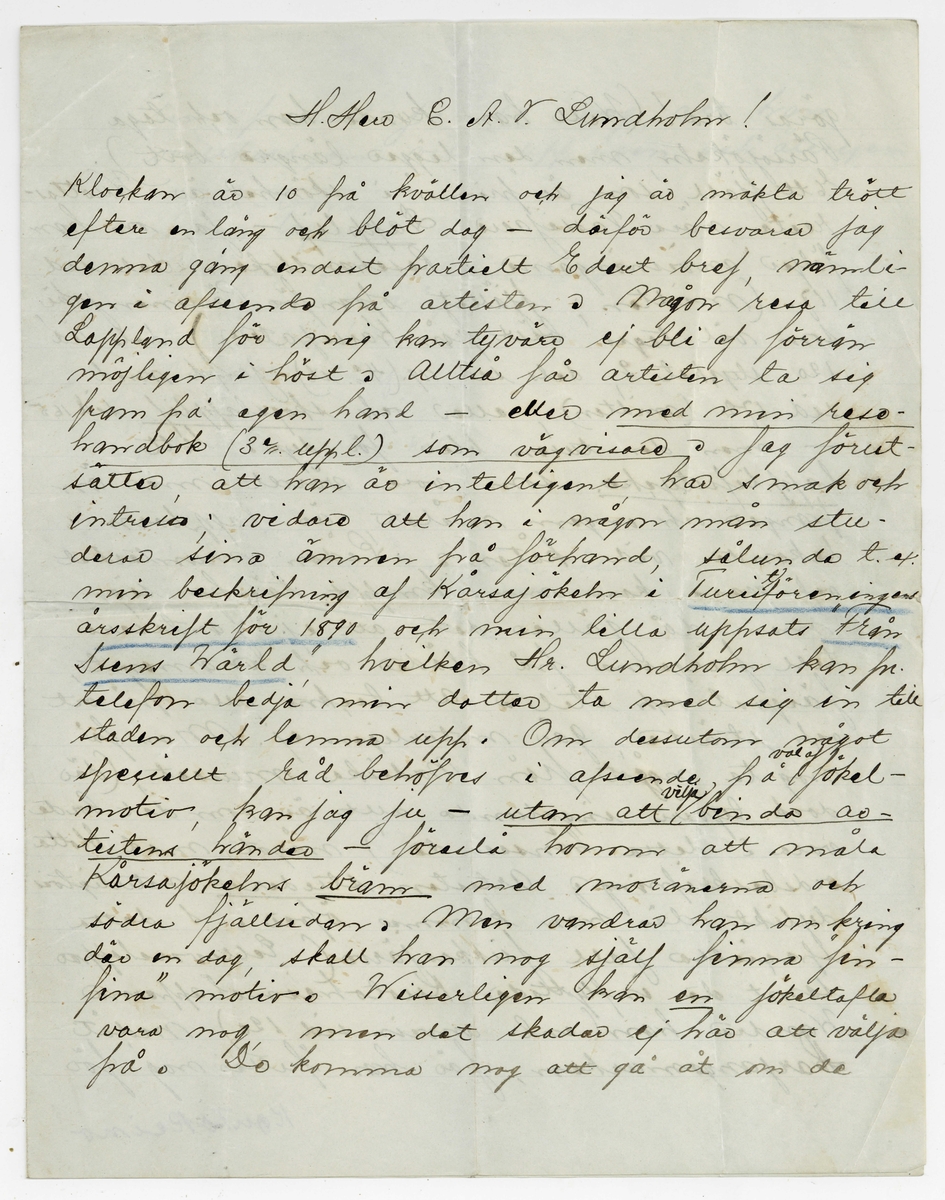 H. Herr C. A. V. Lundholm!
Klockan är 10 på kvällen och jag är mäkta trött
efter en lång och blöt dag — därför besvarar jag
denna gång endast partielt Edert bref, nämli-
gen i afseende på artisten. Någon resa till
Lappland för mig kan tyvärr ej bli af förrän
möjligen i höst. Alltså får artisten ta sig
fram på egen hand — eller med min rese-
handbok (3e. uppl.) som vägvisare. Jag förut-
sätter, att han är intelligent, har smak och
intresse; vidare att han i någon mån stu-
derar sina ämnen på förhand, sålunda t. ex.
min beskrifning af Kårsajökeln i Turistföreningens
årsskrift för 1890 och min lilla uppsats "Från
Isens Wärld", hvilken Hr. Lundholm kan pr.
telefon bedja min dotter ta med sig in till
staden och lemna upp. Om dessutom något
speciellt råd behöfves i afseende på val af jökel-
motiv, kan jag ju — utan att vilja binda ar-
tistens händer — föreslå honom att måla
Kårsajökelns bräm med moränerna och
södra fjällsidan. Men vandrar han omkring
där en dag, skall han nog själf finna "fin-
fina" motiv. Wisserligen kan en jökeltafla
vara nog, men det skadar ej här att välja
på. De komma nog att gå åt om de